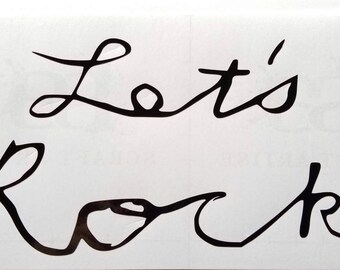 Let's
Rock